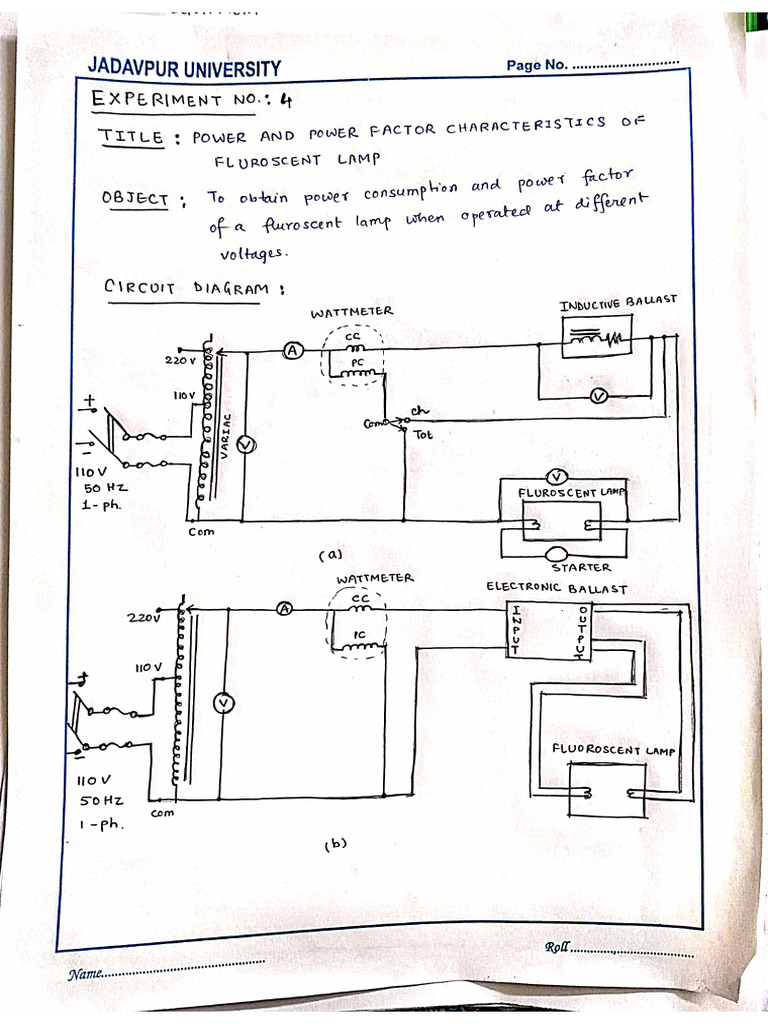 JADAVPUR UNIVERSITY
Page No. ...........................
EXPERIMENT NO.: 4
TITLE : POWER AND POWER FACTOR CHARACTERISTICS OF
FLUROSCENT LAMP
OBJECT : To obtain power consumption and power factor
of a fluroscent lamp when operated at different
voltages.
CIRCUIT DIAGRAM :
INDUCTIVE BALLAST
WATTMETER
CC
220V
A
PC
110V
V
+
ch
Com
Tot
VARIAC
V
-
110V
50 HZ
1-ph.
V
FLUROSCENT LAMP
Com
(a)
STARTER
WATTMETER
ELECTRONIC BALLAST
CC
220V
A
INPUT
OUTPUT
IC
110V
+
V
-
FLUOROSCENT LAMP
110V
50HZ
1-ph.
com
(b)
Roll ...............................
Name..........................................